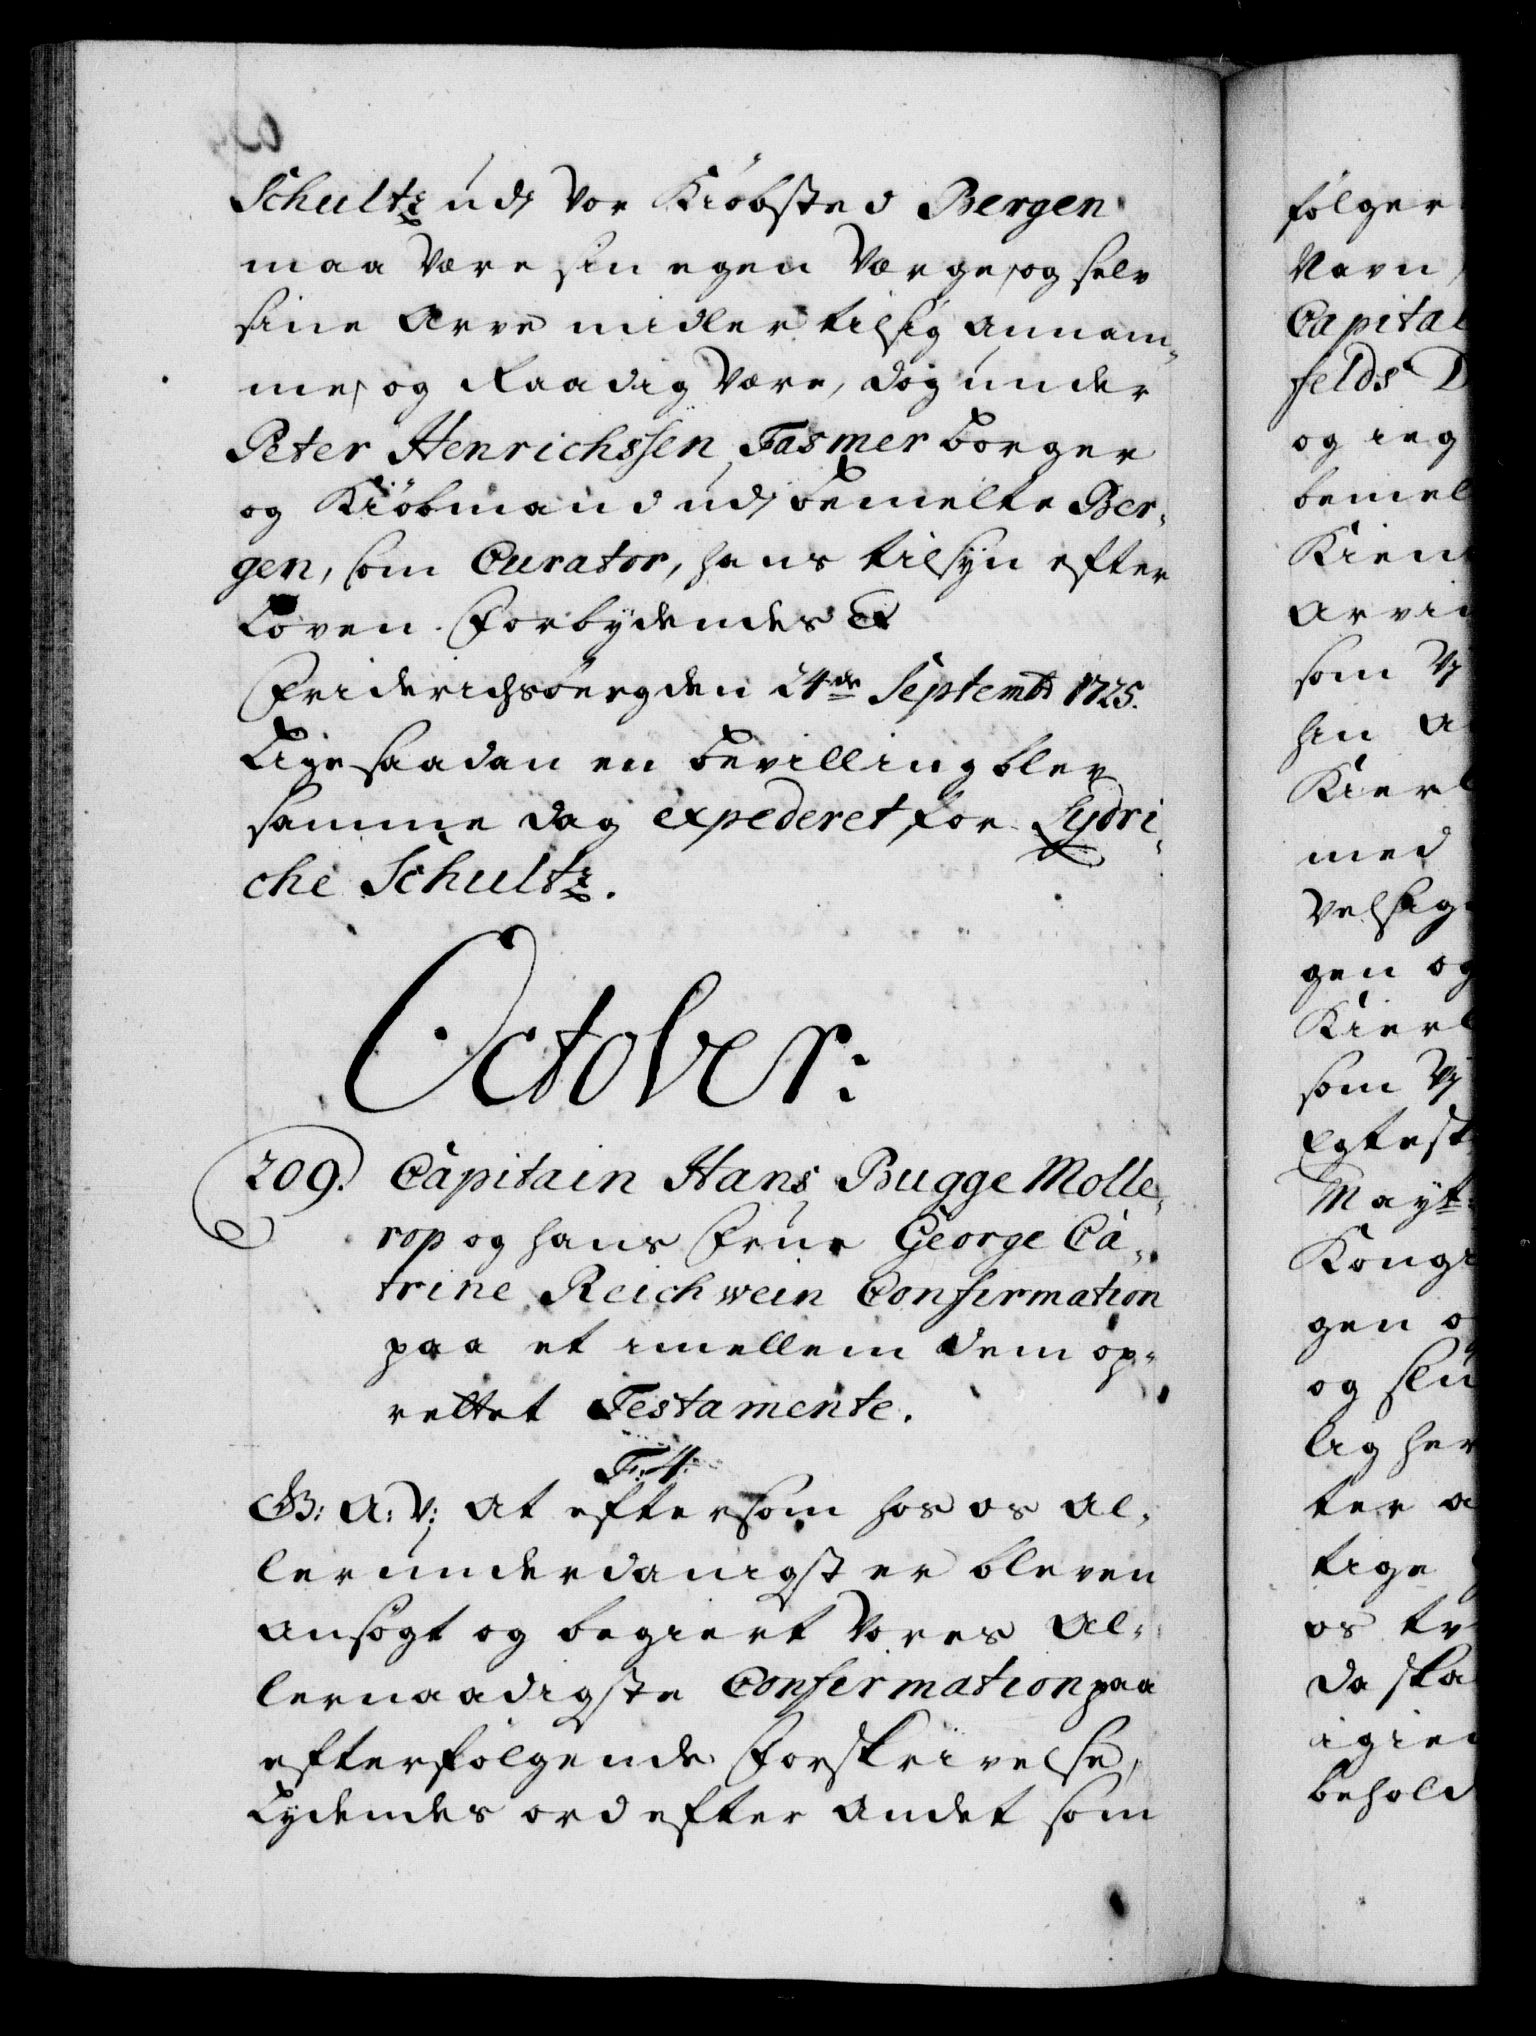 Schultz udj Vor Kiöbsted Bergen
maa være sin egen Værge, og selv
sine Arve midler til sig annam„
me, og Raadig være, dog under
Peter Henrichssen Fasmer Borger
og Kiöbmand udj bemelte Ber„
gen, som Curator, hans tilsyn efter
Loven. Forbydendes &
Friderichsberg den 24de Septembr 1725.
Lige saadan en bevilling blev
samme dag expederet for Lydri„
che Schultz.
October:
209. Capitain Hans Bugge Molle„
rop og hans Frue George Ca„
trine Reichwein Confirmation
paa et imellem dem op„
rettet Testamente.
F: 4:
G: A: V: at eftersom hos os al„
lerunderdanigst er bleven
ansøgt og begiert Vores Al„
lernaadigste Confirmation paa
efterfølgende Forskrivelse,
Lydendes ord efter andet som
følger
Navn
Capital
felds D
og ieg
bemel
Kien
Arvi
som Vj
hin A
Kierl
med
velsig
gen og
Kierl
som Vj
Egtesk
Mayt:
Kong
gen o
og slu
lig her
ter a
tige
os tv
da ska
igien
behold